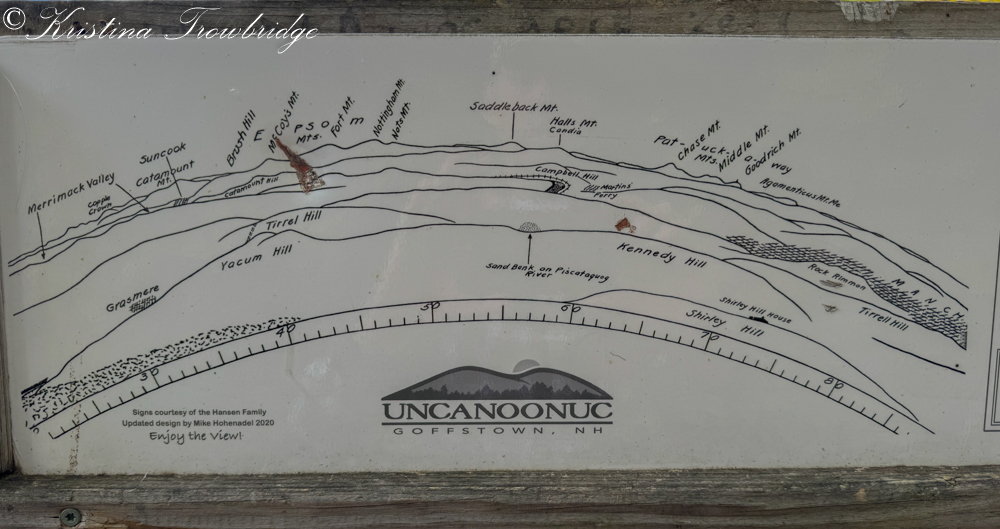 © Kristina Trowbridge
Merrimack Valley
Copple
Crown
Suncook
Catamount
Mt.
Brush Hill
McCoy's Mt.
EPSOM
Mts.
Fort Mt.
Nottingham Mt.
Nats Mt.
Saddleback Mt.
Halls Mt.
Candia
Pat-uck-a-way
Mts.
Chase Mt.
Middle Mt.
Goodrich Mt.
Agamenticus Mt. Me
Catamount Hill
Campbell Hill
Martins
Ferry
Tirrel Hill
Yacum Hill
Grasmere
Sand Bank on Piscataquog
River
Kennedy Hill
Rock Rimmon
MANCH.
Tirrell Hill
Shirley Hill House
Shirley Hill
30
40
50
60
70
80
Signs courtesy of the Hansen Family
Updated design by Mike Hohenadel 2020
Enjoy the View!
UNCANOONUC
GOFFSTOWN, NH